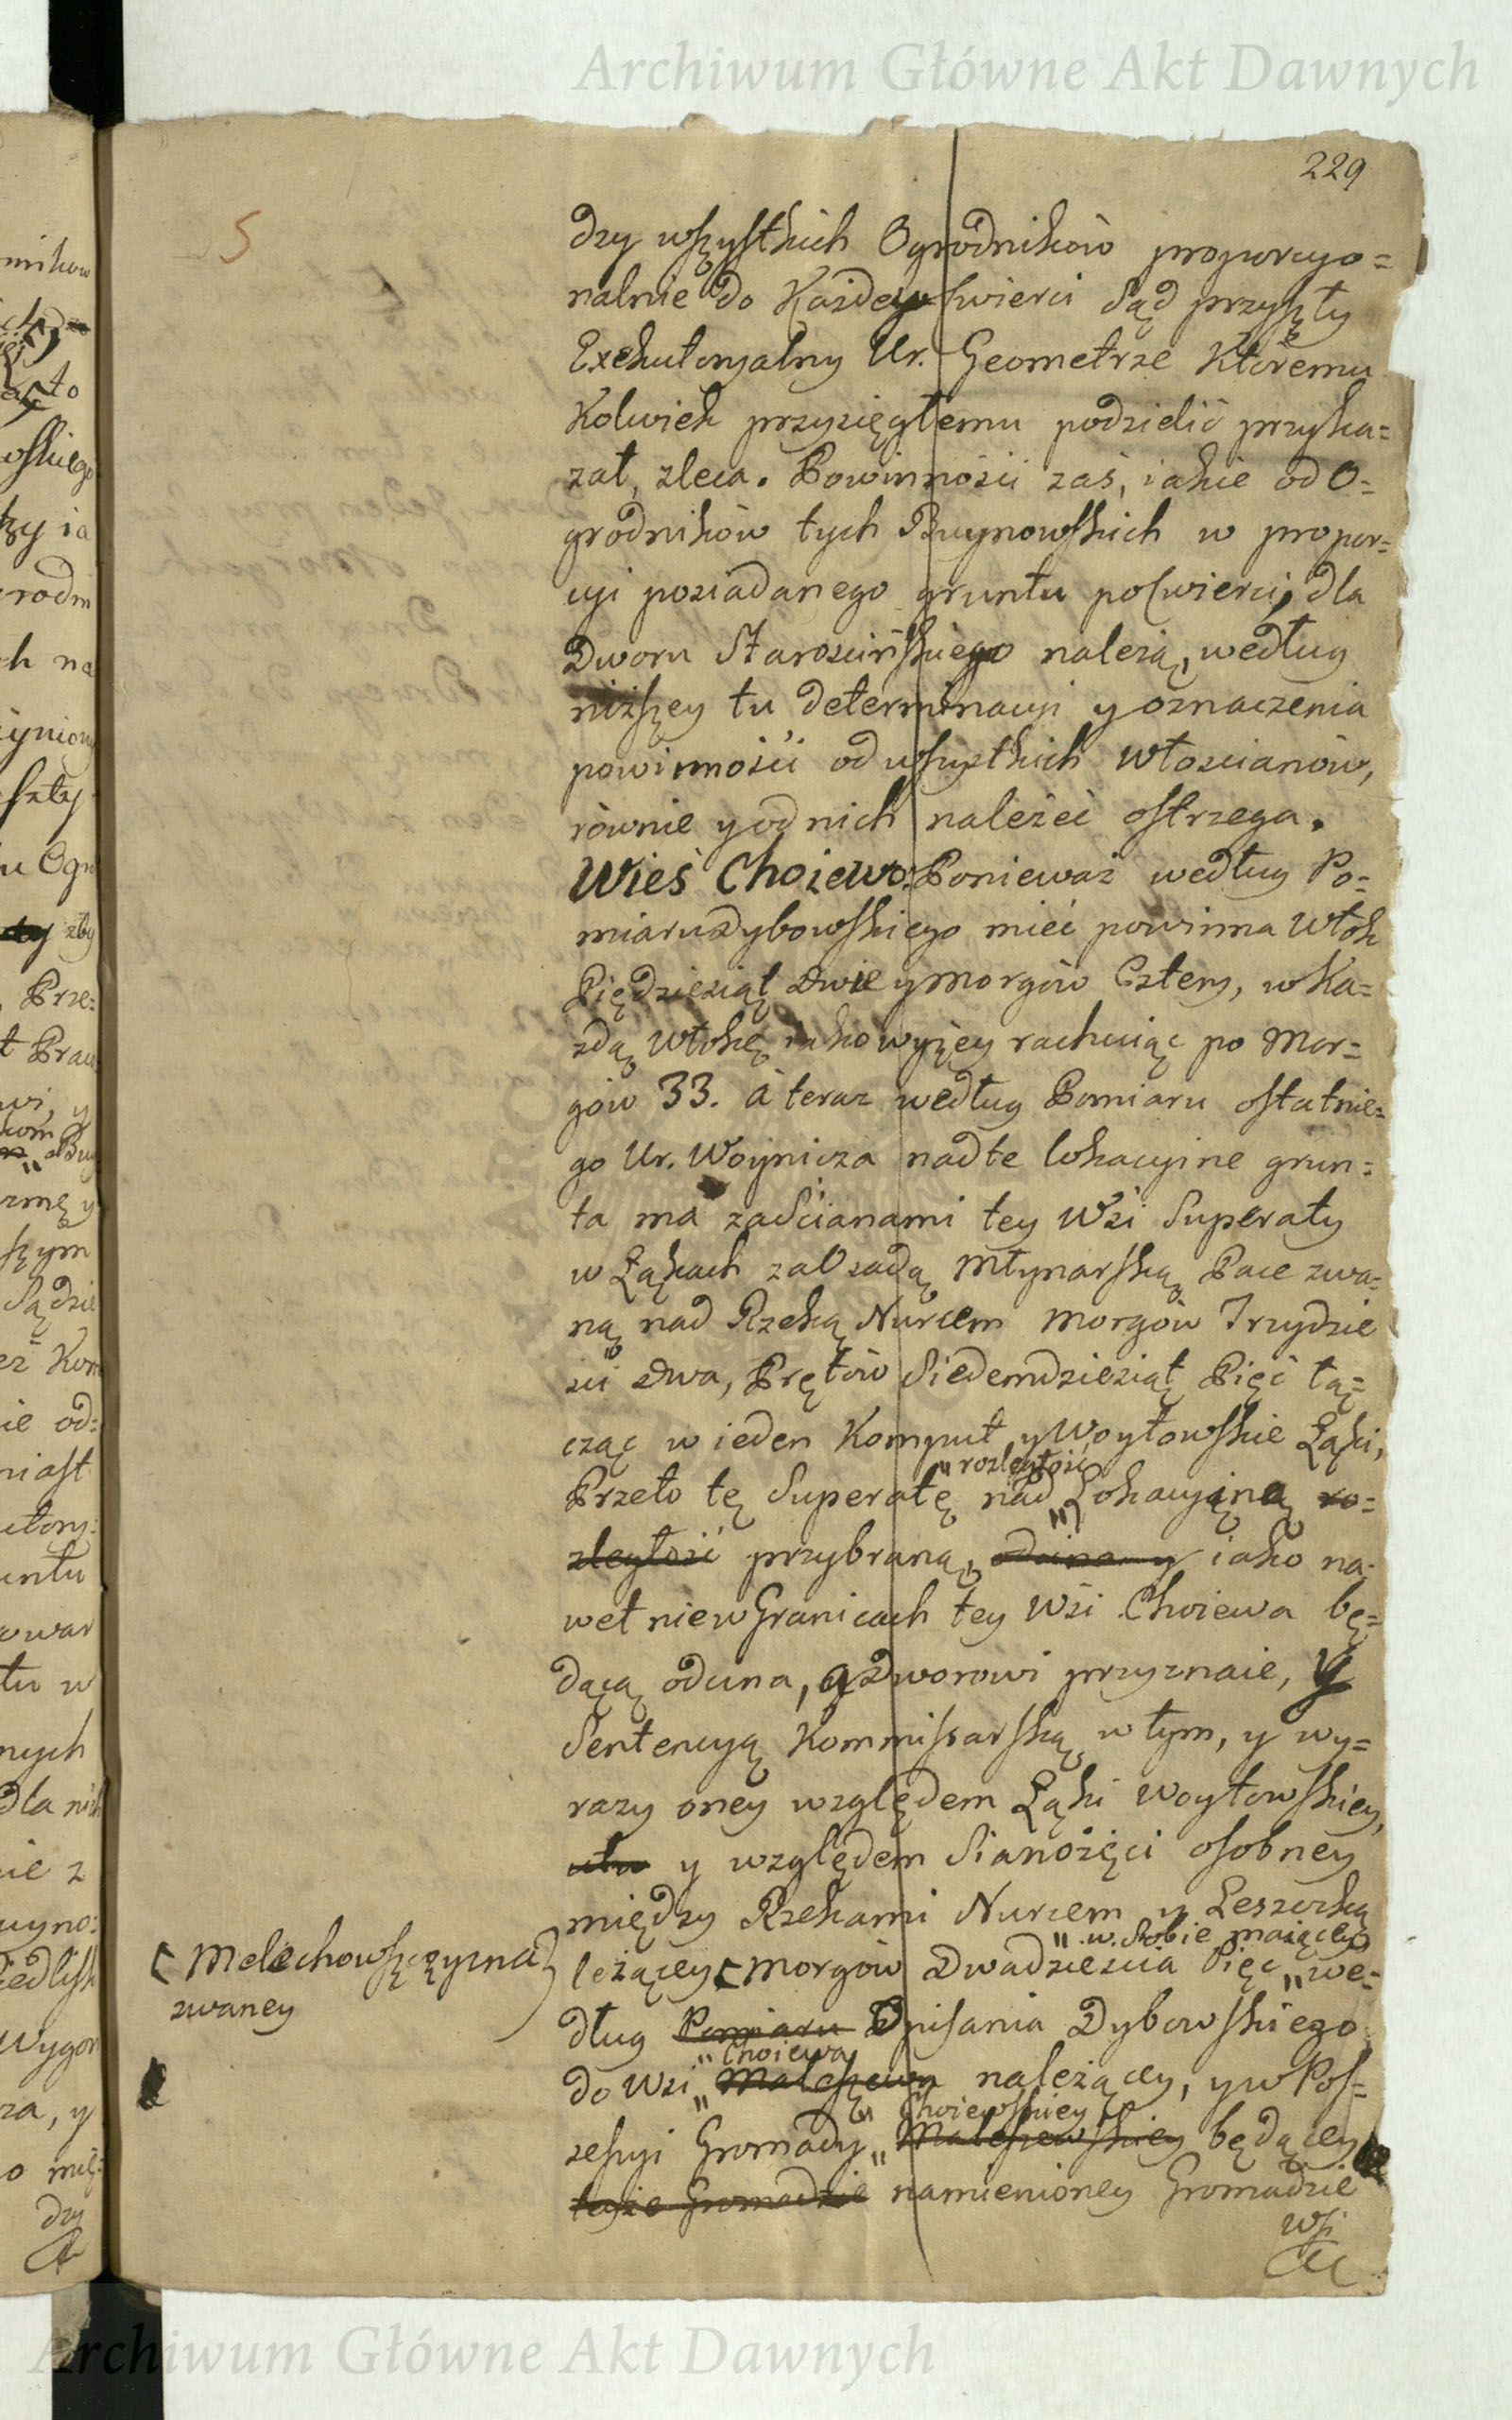 Archiwum Główne Akt Dawnych
229
5
dzy wszystkich Ogrodników proporcyo=
nalnie do Każdey ćwierci Sąd przyszły
Exekutoryalny Ur. Geometrze Któremu
Kolwiek przysięgłemu podzielić przyka=
zał, zleca. Powinności zaś, iakie od O=
grodników tych Buynowskich w propor=
cyi posiadanego gruntu poćwierci, dla
Dworu Starościńskiego należą, według
niższey tu determinacyi y oznaczenia
powinności od wszystkich Włościanów,
równie y od nich należeć ostrzega.
Wieś Choiewo. Ponieważ według Po=
miaru Dybowskiego mieć powinna Włok
Pięдziesiąt Dwie y Morgów Cztery, w Ka=
żdą Włokę iako wyżey rachuiąc po Mor=
gów 33. a teraz według Pomiaru ostatnie=
go Ur. Woynicza nad te lokacyine grun=
ta ma za Ścianami tey Wsi Superaty
w Łąkach za Osadą Młynarską Pace zwa=
ną nad Rzeką Nurcem Morgów Trzydzie
ści Dwa, Prętów Siedemdziesiąt Pięć łą=
cząc w ieden Komput y Woytowskie Łąki,
" rozległość
Przeto tę Superatę nad " Lokacyiną ro=
zległość przybraną, iako na=
wet nie w Granicach tey Wsi Choiewa bę=
dącą odcina, a Dworowi przyznaie, y
Sentencyą Kommissarską w tym, y wy=
razy oney względem Łąki Woytowskiey,
y względem Sianożęci osobney
między Rzekami Nurcem y Leszczką
" w Sobie maiącey
leżącey Morgów Dwadzieścia Pięć " we=
Melechowszczyzna
zwaney
dług Pomiaru Opisania Dybowskiego
" Choiewa
do Wsi " Maleszewa należącey, y w Pos=
" Choiewskiey
sessyi Gromady " Maleszewskiey będącey
teyże Gromadzie namienioney Gromadzie
wsi
Archiwum Główne Akt Dawnych